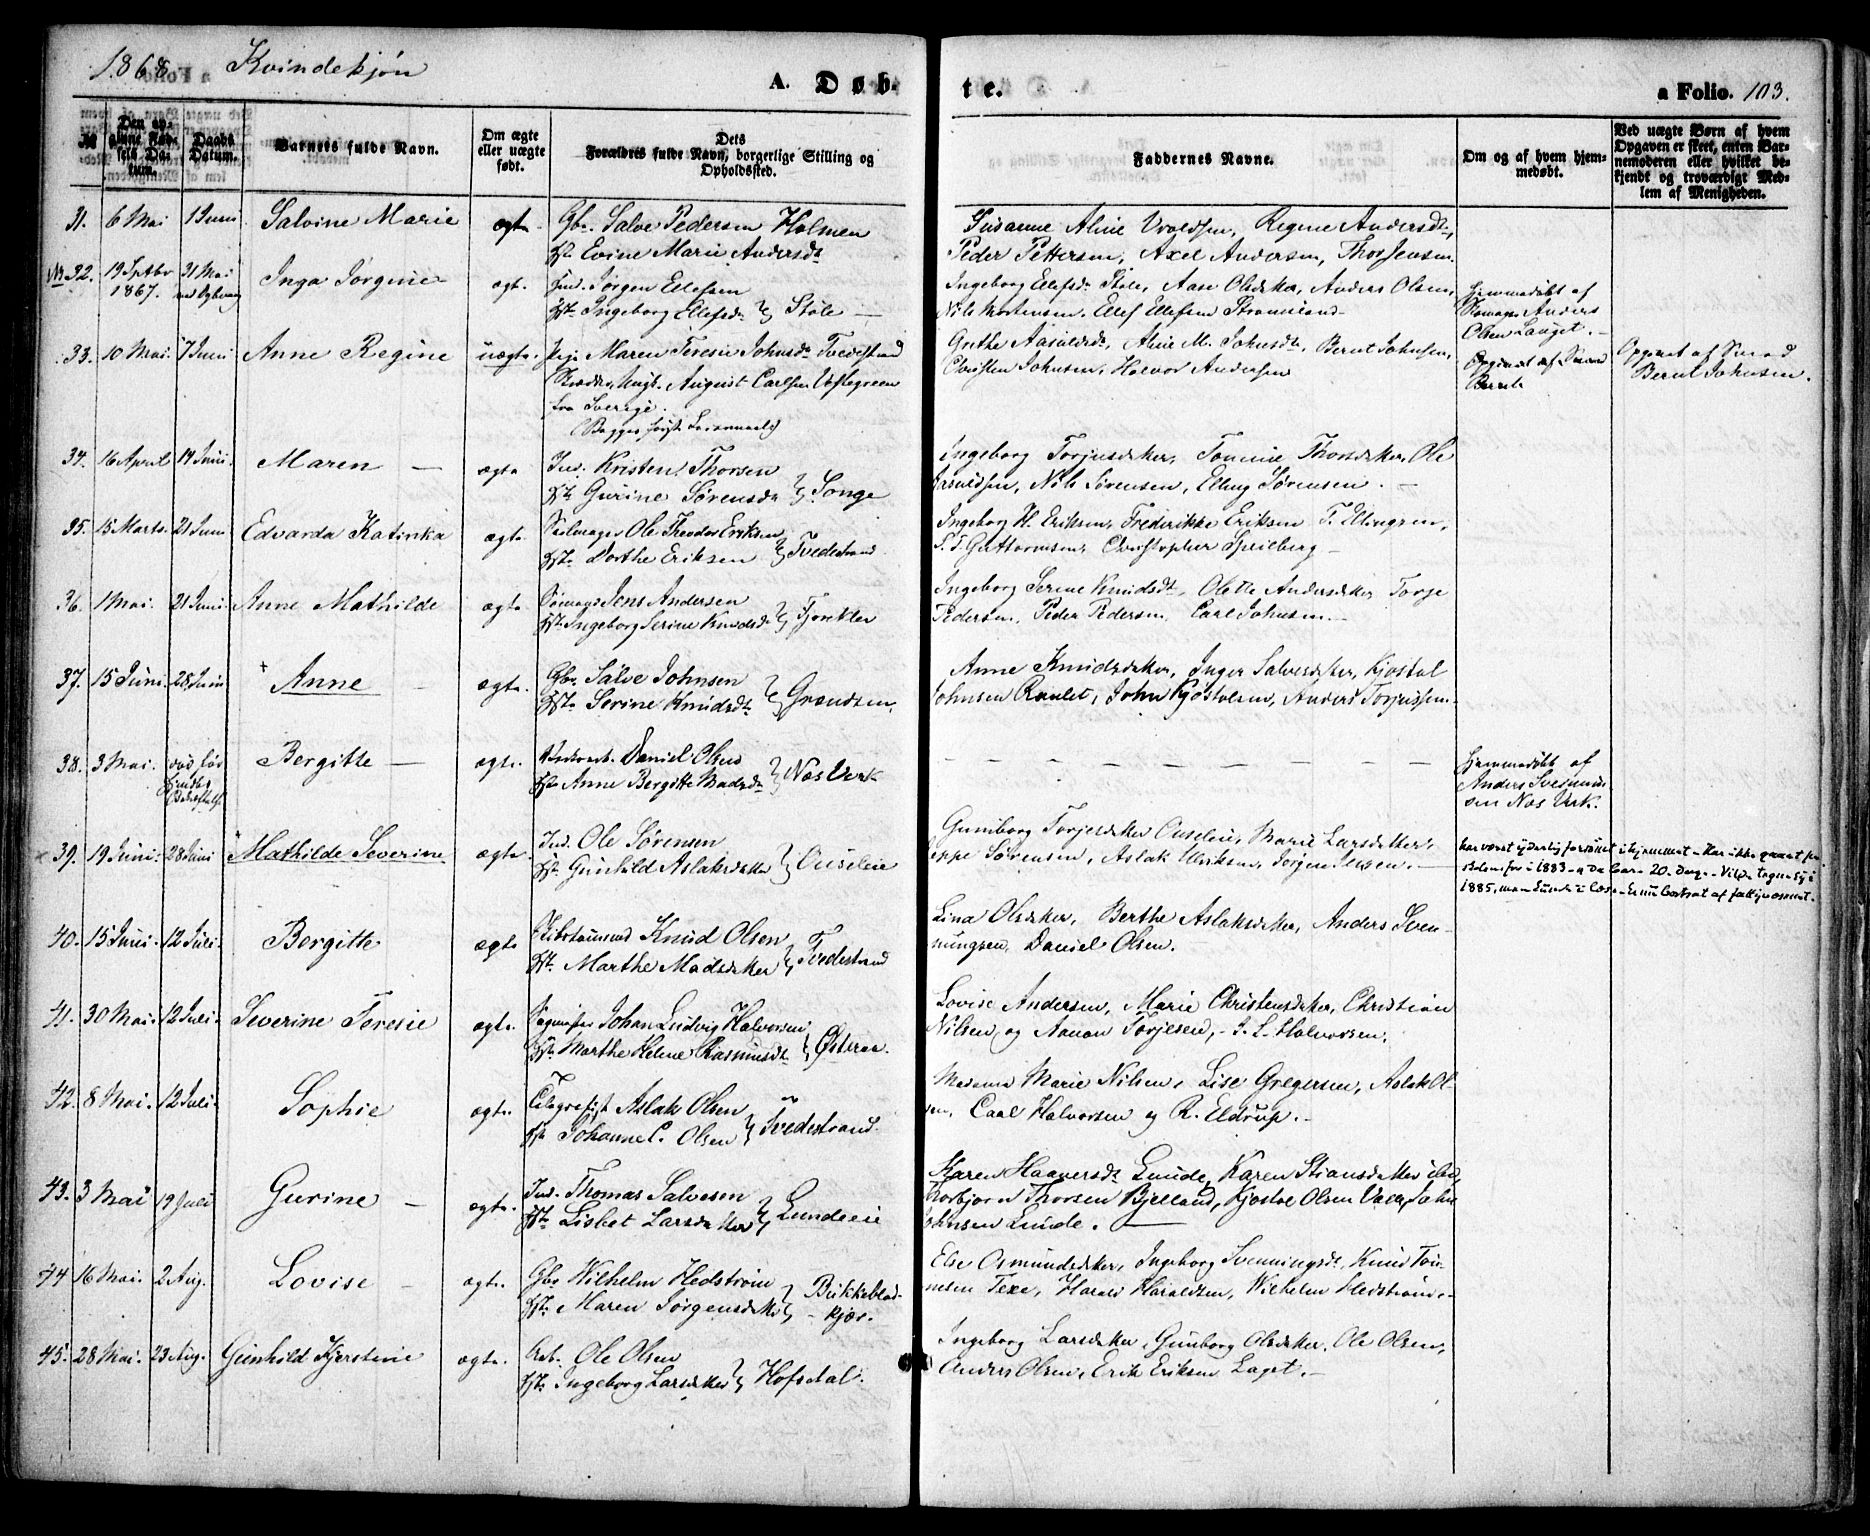 1868 Kvindekjøn
A. Døb-
te.
a Folio. 103.
№
Den op-
givne Fød-
sels Da-
tum.
Daabs
Datum.
Barnets fulde Navn.
Om ægte
eller uægte
født.
Dets
Forældres fulde Navn, borgerlige Stilling og
Opholdssted.
Faddernes Navne.
Om og af hvem hjem-
medøbt.
Ved uægte Børn af hvem
Opgaven er skeet, enten Bar-
nemoderen eller hvilket be-
kjendt og troværdigt Med-
lem af Menigheden.
31. 6 Mai 1 Juni Salvine Marie ægte Gbr. Salve Pedersen Holmen
Hst. Evine Marie Andersdt
Susanne Aline Uvoldsen, Regine Andersdt,
Peder Pettersen, Axel Andersen, Thor Jensen
32. 19 Septbr 31 Mai
1867.
Inga Jørgine ægt. Ind. Jørgen Ellefsen
Hst. Ingeborg Ellefsdr } Støle
Ingeborg Ellefsdr Støle, Aase Olsdkter, Anders Olsen,
Nils Mortensen, Ellef Ellefsen Strømland
Hjemmedøbt af
Anders
Olsen Lauget.
33. 10 Mai 7 Juni Anne Regine uægte. Pige Maren Teresie Johnsdt Tvedestrand
August Carlsen
fra Sverige.
Grethe Aasuldsdt, Aline M. Johnsdt, Bernt Johnsen,
Christen Johnsen, Halvor Andersen
Opgivet af Smed
Bernt Johnsen.
34. 16 April 14 Juni. Maren ægte Ind. Kristen Thorsen
Hst. Gurine Sørensdr } Songe
Ingeborg Torjusdkter, Tomine Thorsdkter, Ole
Nils Sørensen, Elling Sørensen.
35. 15 Marts. 21 Juni Edvarda Katinka ægte Seilmager Ole Theodor Eriksen
Hst. Dorthe Eriksen } Tvedestrand
Ingeborg H. Eriksen, Frederikke Eriksen, T. Ellingsen,
Guttormsen, Christopher Speilberg
36. 1 Mai. 21 Juni. Anne Mathilde ægte Jens Andersen
Hst. Ingeborg Serine Knudsdt }
Ingeborg Serine Knudsdt, Olette Andersdkter, Torje
Pedersen, Peder Pedersen, Carl Johnsen
37. 15 Juni 28 Juni Anne ægte. Gbr Salve Johnsen
Hst. Serine Knudsdt } Grændsen.
Anne Knudsdkter, Inger Salvesdkter, Kjøstol
Johnsen Ranlet, John Kjøstolsen, Anders Torjussen
38. 3 Mai. død før
Bergitte ægte. Daniel Olsen
Hst. Anne Bergitte Madsdt } Næs Verk
Hjemmedøbt af
Anders Svenunds
sen Næs Verk.
39. 19 Juni. 28 Juni Mathilde Severine ægte. Ind. Ole Sørensen
Hst. Gunhild Aslaksdkter } Ouseleie
Gunborg Torjesdkter Ouseleie, Marie Larsdkter,
Jeppe Sørensen, Aslak Ulriksen, Jørgen Jensen.
40. 15 Juni. 12 Juli. Bergitte ægte Knud Olsen
Hst. Marthe Madsdkter } Tvedestrand
Lina Olsdkter, Berthe Aslaksdkter, Anders Sven-
mungsen, Daniel Olsen.
41. 30 Mai. 12 Juli. Severine Teresie ægte. Johan Ludvig Halvorsen
Hst. Marthe Helene Rasmusdt } Østeraa.
Lovise Andersen, Marie Christensdkter, Christian
Nilsen og Aanon Torjesen, J. L. Halvorsen.
42. 8 Mai. 12 Juli. Sophie ægte. Telegrafist Aslak Olsen
Hst. Johanne C. Olsen } Tvedestrand.
Madame Marie Nilsen, Lise Gregersen, Aslak Ol-
sen, Carl Halvorsen og R. Eldrup.
43. 3 Mai 19 Juli Gurine ægte. Ind. Thomas Salvesen
Hst. Lisbet Larsdkter } Lundeeie
Karen Haaversdt Lunde, Karen Stiansdkter ibd,
Thorbjørn Thorsen Bjelland, Kjøstol Olsen
Johnsen Lunde.
44 16 Mai. 2 Aug. Lovise ægte. Gbr Wilhelm Hedstrøm
Hst. Maren Jørgensdkt } Bukkeblad-
kjær.
Else Osmundsdkter, Ingeborg Svenningsdt, Knud Tom-
mesen Texe, Harald Haraldsen, Wilhelm Hedstrøm.
45. 28 Mai. 23 Aug. Gunhild Kjerstine ægte. Arb. Ole Olsen
Hst. Ingeborg Larsdkter } Hofsdal.
Ingeborg Larsdkter, Gunborg Olsdkter, Ole Olsen,
Anders Olsen, Erik Eriksen Laget.